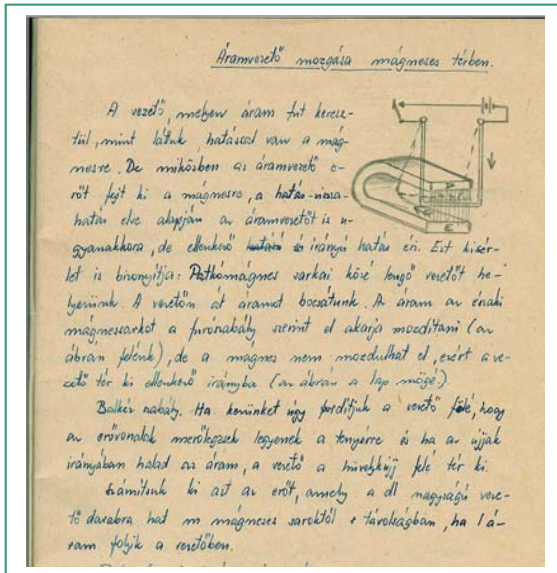 Áramvezető mozgása mágneses térben.
A vezető, melyen áram fut keresz-
tül, mint látuk hatással van a mág-
nesre. De miközben az áramvezető e-
rőt fejt ki a mágnesre, a hatás-vissza-
hatás elve alapján az áramvezetőt is u-
gyanakkora, de ellenkező irányú hatás éri. Ezt kisér-
let is bizonyítja: Patkómágnes sarkai közé lengő vezetőt he-
lyezünk. A vezetőn át áramot bocsátunk. Az áram az északi
mágnessarkot a fúrószabály szerint el akarja mozdítani (az
ábrán felénk), de a mágnes nem mozdulhat el, ezért a ve-
zető tér ki ellenkező irányba (az ábrán a lap mögé).
Balkéz szabály. Ha kezünket úgy fordítjuk a vezető fölé, hogy
az erővonalak merőlegesek legyenek a tenyérre és ha az ujjak
irányában halad az áram, a vezető a hüvelykújj felé tér ki.
Számítsuk ki azt az erőt, amely a dl nagyságú veze-
tő darabra hat m mágneses saroktól r távolságban, ha I á-
ram folyik a vezetőben.